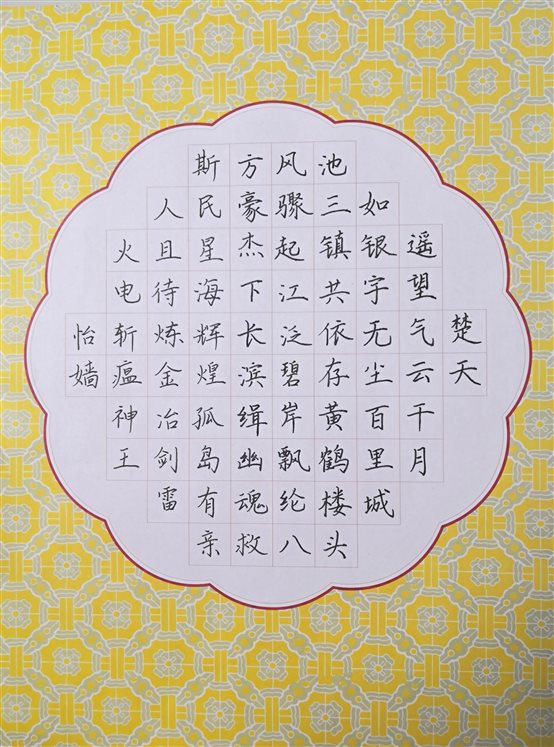 楚天
遥望气云干月
如银宇无尘百里城
池三镇共依存黄鹤楼头
风骤起江泛碧岸飘纶八
方豪杰下长滨缉幽魂救
斯民星海辉煌孤岛有亲
人且待炼金冶剑雷
火电斩瘟神王
怡嫱